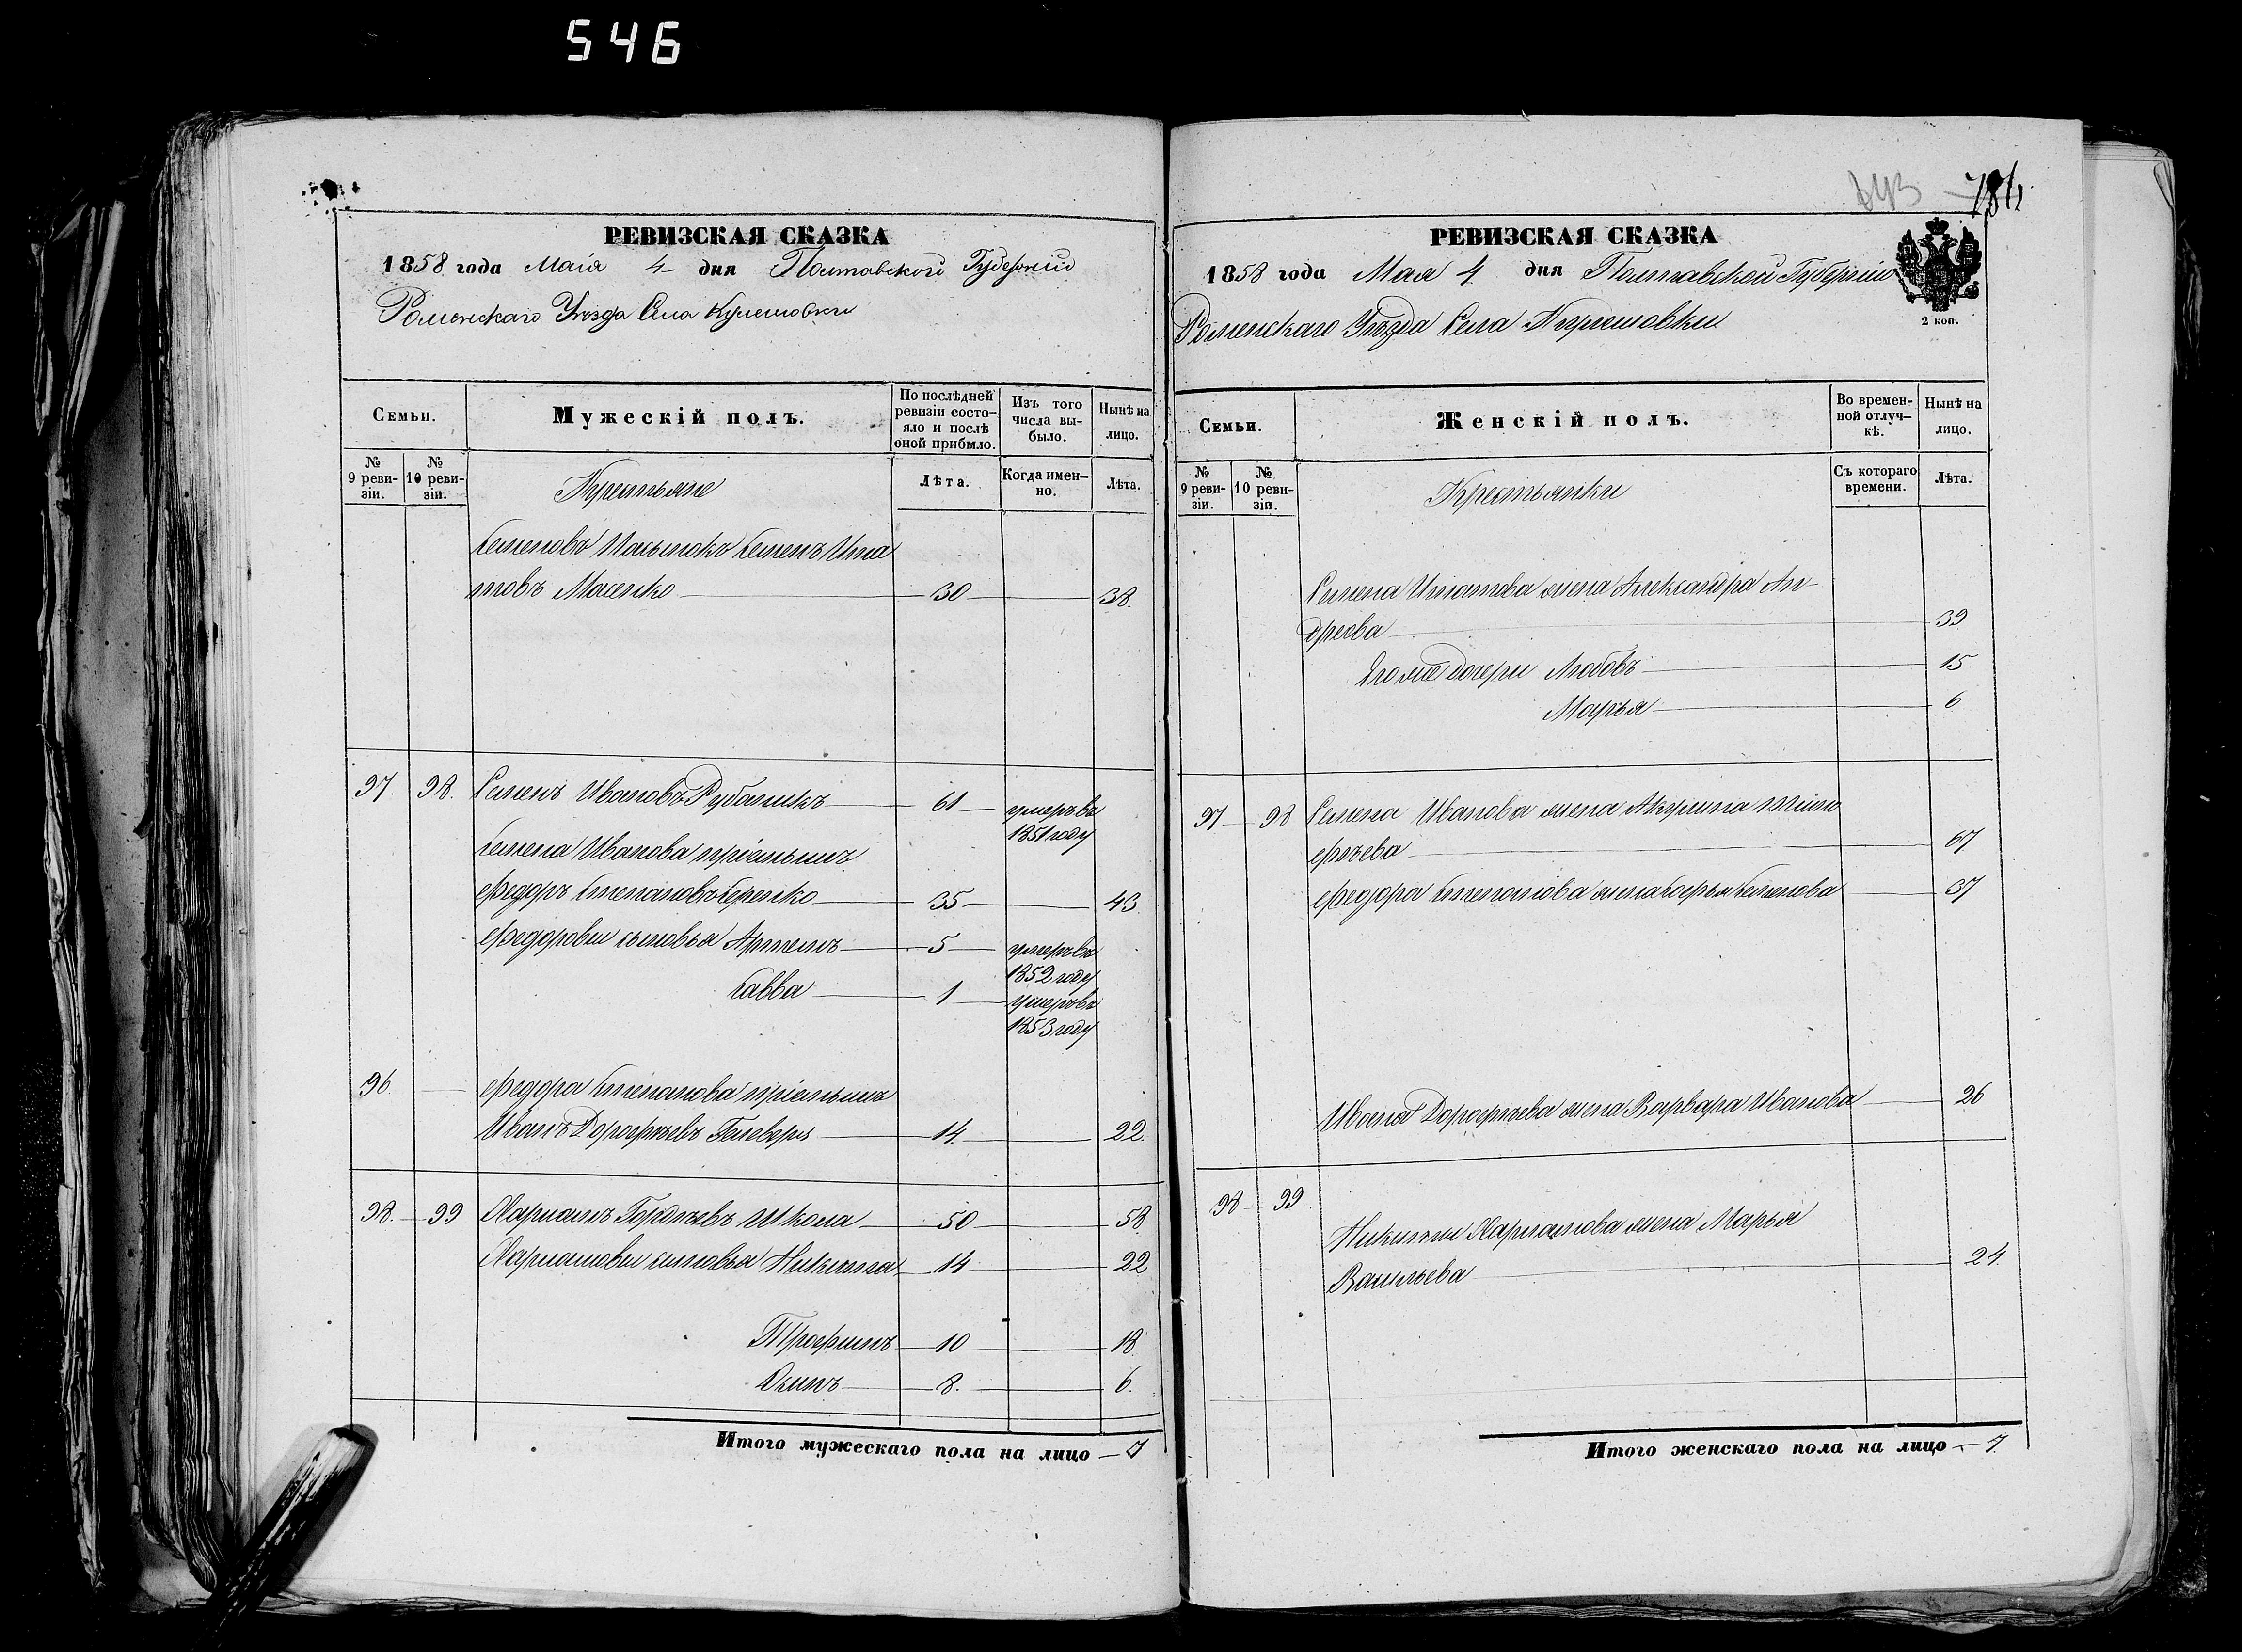 546
РЕВИЗСКАЯ СКАЗКА
1858 года Маія 4 дня Полтавской Губерніи
Роменскаго Уезда Села Кулешовки
Семьи.
Мужескій полъ.
По послѣдней ревизіи состо-яло и послѣ оной прибыло.
Изъ того числа вы-было.
Нынѣ на лицо.
№ 9 реви-зіи.
№ 10 реви-зіи.
Крестьяне
Лѣта.
Когда имен-но.
Лѣта.
Семеновъ Семенъ Игна
товъ Мосенко 30 38.
97. 98. Семенъ Ивановъ Рубаникъ 61 умеръ въ
1851 году
Семена Иванова пріемышъ
Федоръ Степановъ Середко 35 43
Федоровы сыновья Артемъ 5 умеръ въ
1852 году
Савва 1 умеръ въ
1853 году
96. Федора Степанова пріемышъ
Иванъ Дорофѣевъ 14. 22.
98. 99 Харлампъ Гордѣевъ Школа 50 58
сыновья Никита 14 22
Трофимъ 10 18
Якимъ 8. 6.
Итого мужескаго пола на лицо 7
РЕВИЗСКАЯ СКАЗКА
1858 года Мая 4 дня Полтавской Губерніи
Роменскаго Уѣзда Села Кулешовки
2 коп.
Семьи.
Женскій полъ.
Во времен-ной отлуч-кѣ.
Нынѣ на лицо.
№ 9 реви-зіи.
№ 10 реви-зіи.
Крестьянки
Съ котораго времени.
Лѣта.
Семена Игнатова жена Александра Ан-
дреева 39
Его же дочери Любовь 15
Марья 6
97 98 Семена Иванова жена Акулина Тимо
фѣева 67
Федора Степанова жена Софья Семенова 37
Ивана Дорофѣева жена Варвара Иванова 26
98 99
Никиты Харлампова жена Марья
Васильева 24.
Итого женскаго пола на лицо 7.